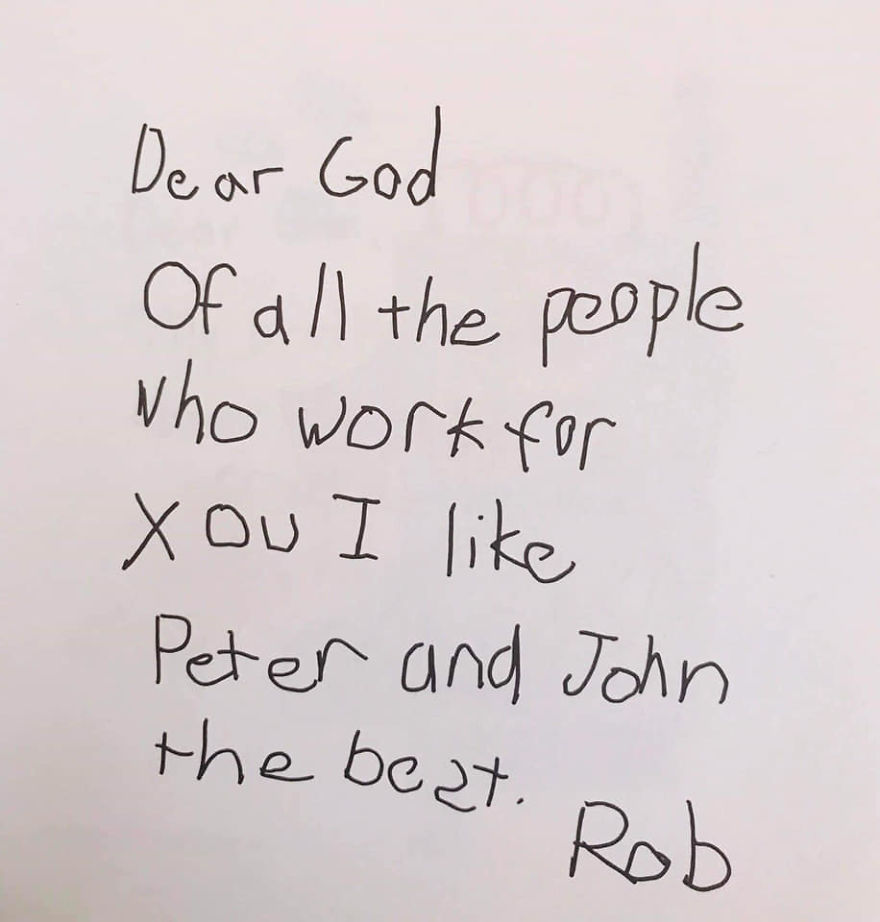 Dear God
Of all the people
who work for
you I like
Peter and John
the best.
Rob